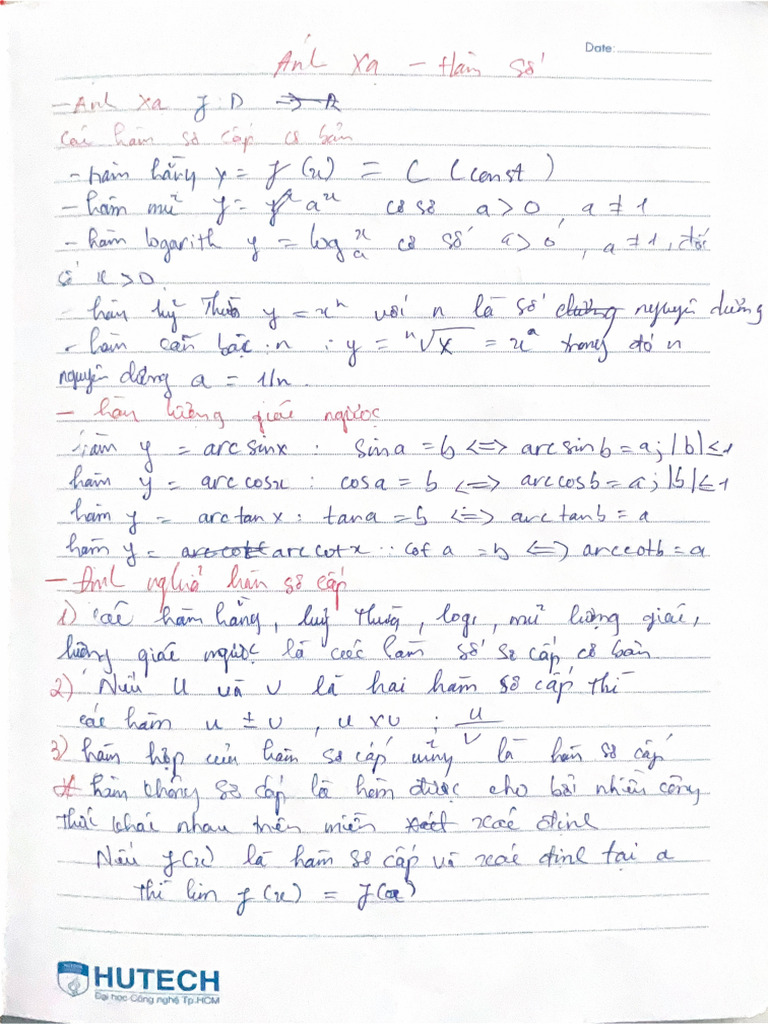 Date:
Ánh xạ - Hàm số
- Ánh xạ f: D → R
Các hàm sơ cấp cơ bản
- hàm hằng y = f(x) = C (const)
- hàm mũ y = a^x cơ số a > 0, a ≠ 1
- hàm logarith y = log_a^x cơ số a > 0, a ≠ 1, đối
số x > 0
- hàm luỹ thừa y = x^n với n là số nguyên dương
- hàm căn bậc n : y = ⁿ√x = x^a trong đó n
nguyên dương a = 1/n.
- hàm lượng giác ngược
hàm y = arc sinx : sina = b <=> arc sinb = a; |b| ≤ 1
hàm y = arc cosx : cosa = b <=> arc cosb = a; |b| ≤ 1
hàm y = arc tanx : tana = b <=> arc tanb = a
hàm y = arc cotx : cot a = b <=> arc cotb = a
- Định nghĩa hàm sơ cấp
1) Các hàm hằng, luỹ thừa, log, mũ lượng giác,
lượng giác ngược là các hàm số sơ cấp cơ bản
2) Nếu u và v là hai hàm sơ cấp thì
các hàm u ± v, u x v ; u/v
3) hàm hợp của hàm sơ cấp cũng là hàm sơ cấp
* hàm không sơ cấp là hàm được cho bởi nhiều công
thức khác nhau trên miền xác định
Nếu f(x) là hàm sơ cấp và xác định tại a
thì lim f(x) = f(a)
HUTECH
Đại học Công nghệ Tp.HCM